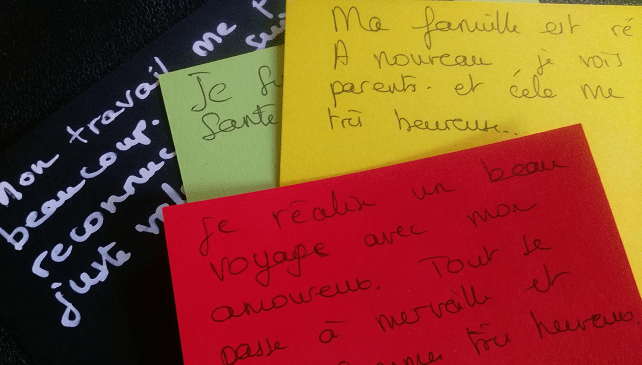 Mon travail me p
beaucoup.
reconnue
juste val
Je su
Santé
Ma famille est ré
A nouveau je vois
parents. et cela me
très heureuse...
Je réalise un beau
voyage avec mon
amoureux. Tout se
passe à merveille et
très heureux